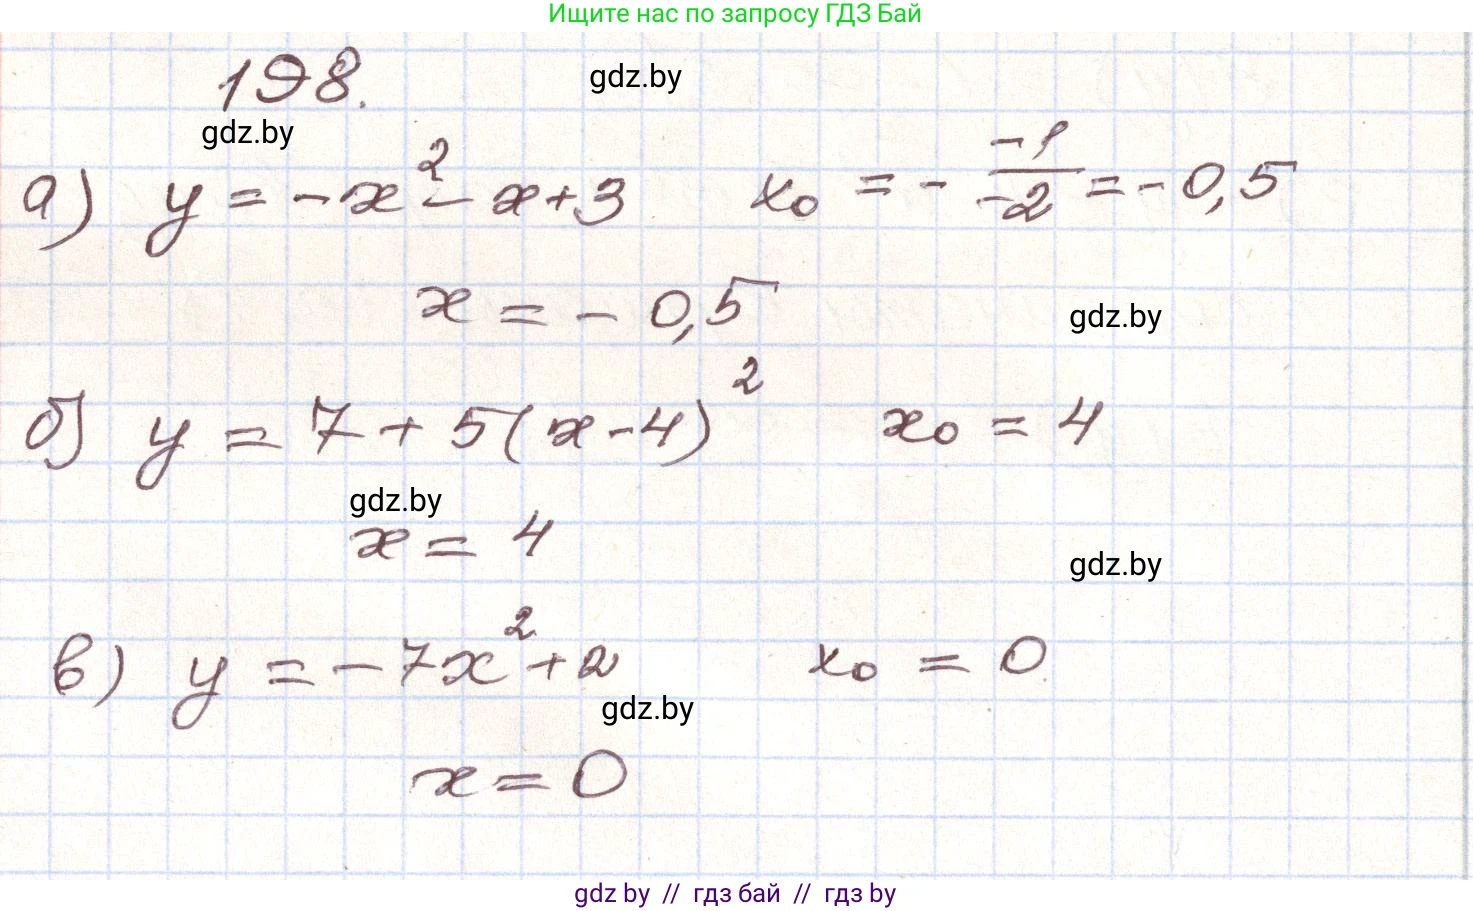 Ищите нас по запросу ГДЗ Бай
198.
gdz.by
gdz.by
а) y = -x² - x + 3    x₀ = - -1/-2 = -0,5
x = -0,5
gdz.by
б) y = 7 + 5(x-4)²    x₀ = 4
gdz.by
x = 4
gdz.by
в) y = -7x² + 2    x₀ = 0
gdz.by
x = 0
gdz by // гдз бай // гдз by